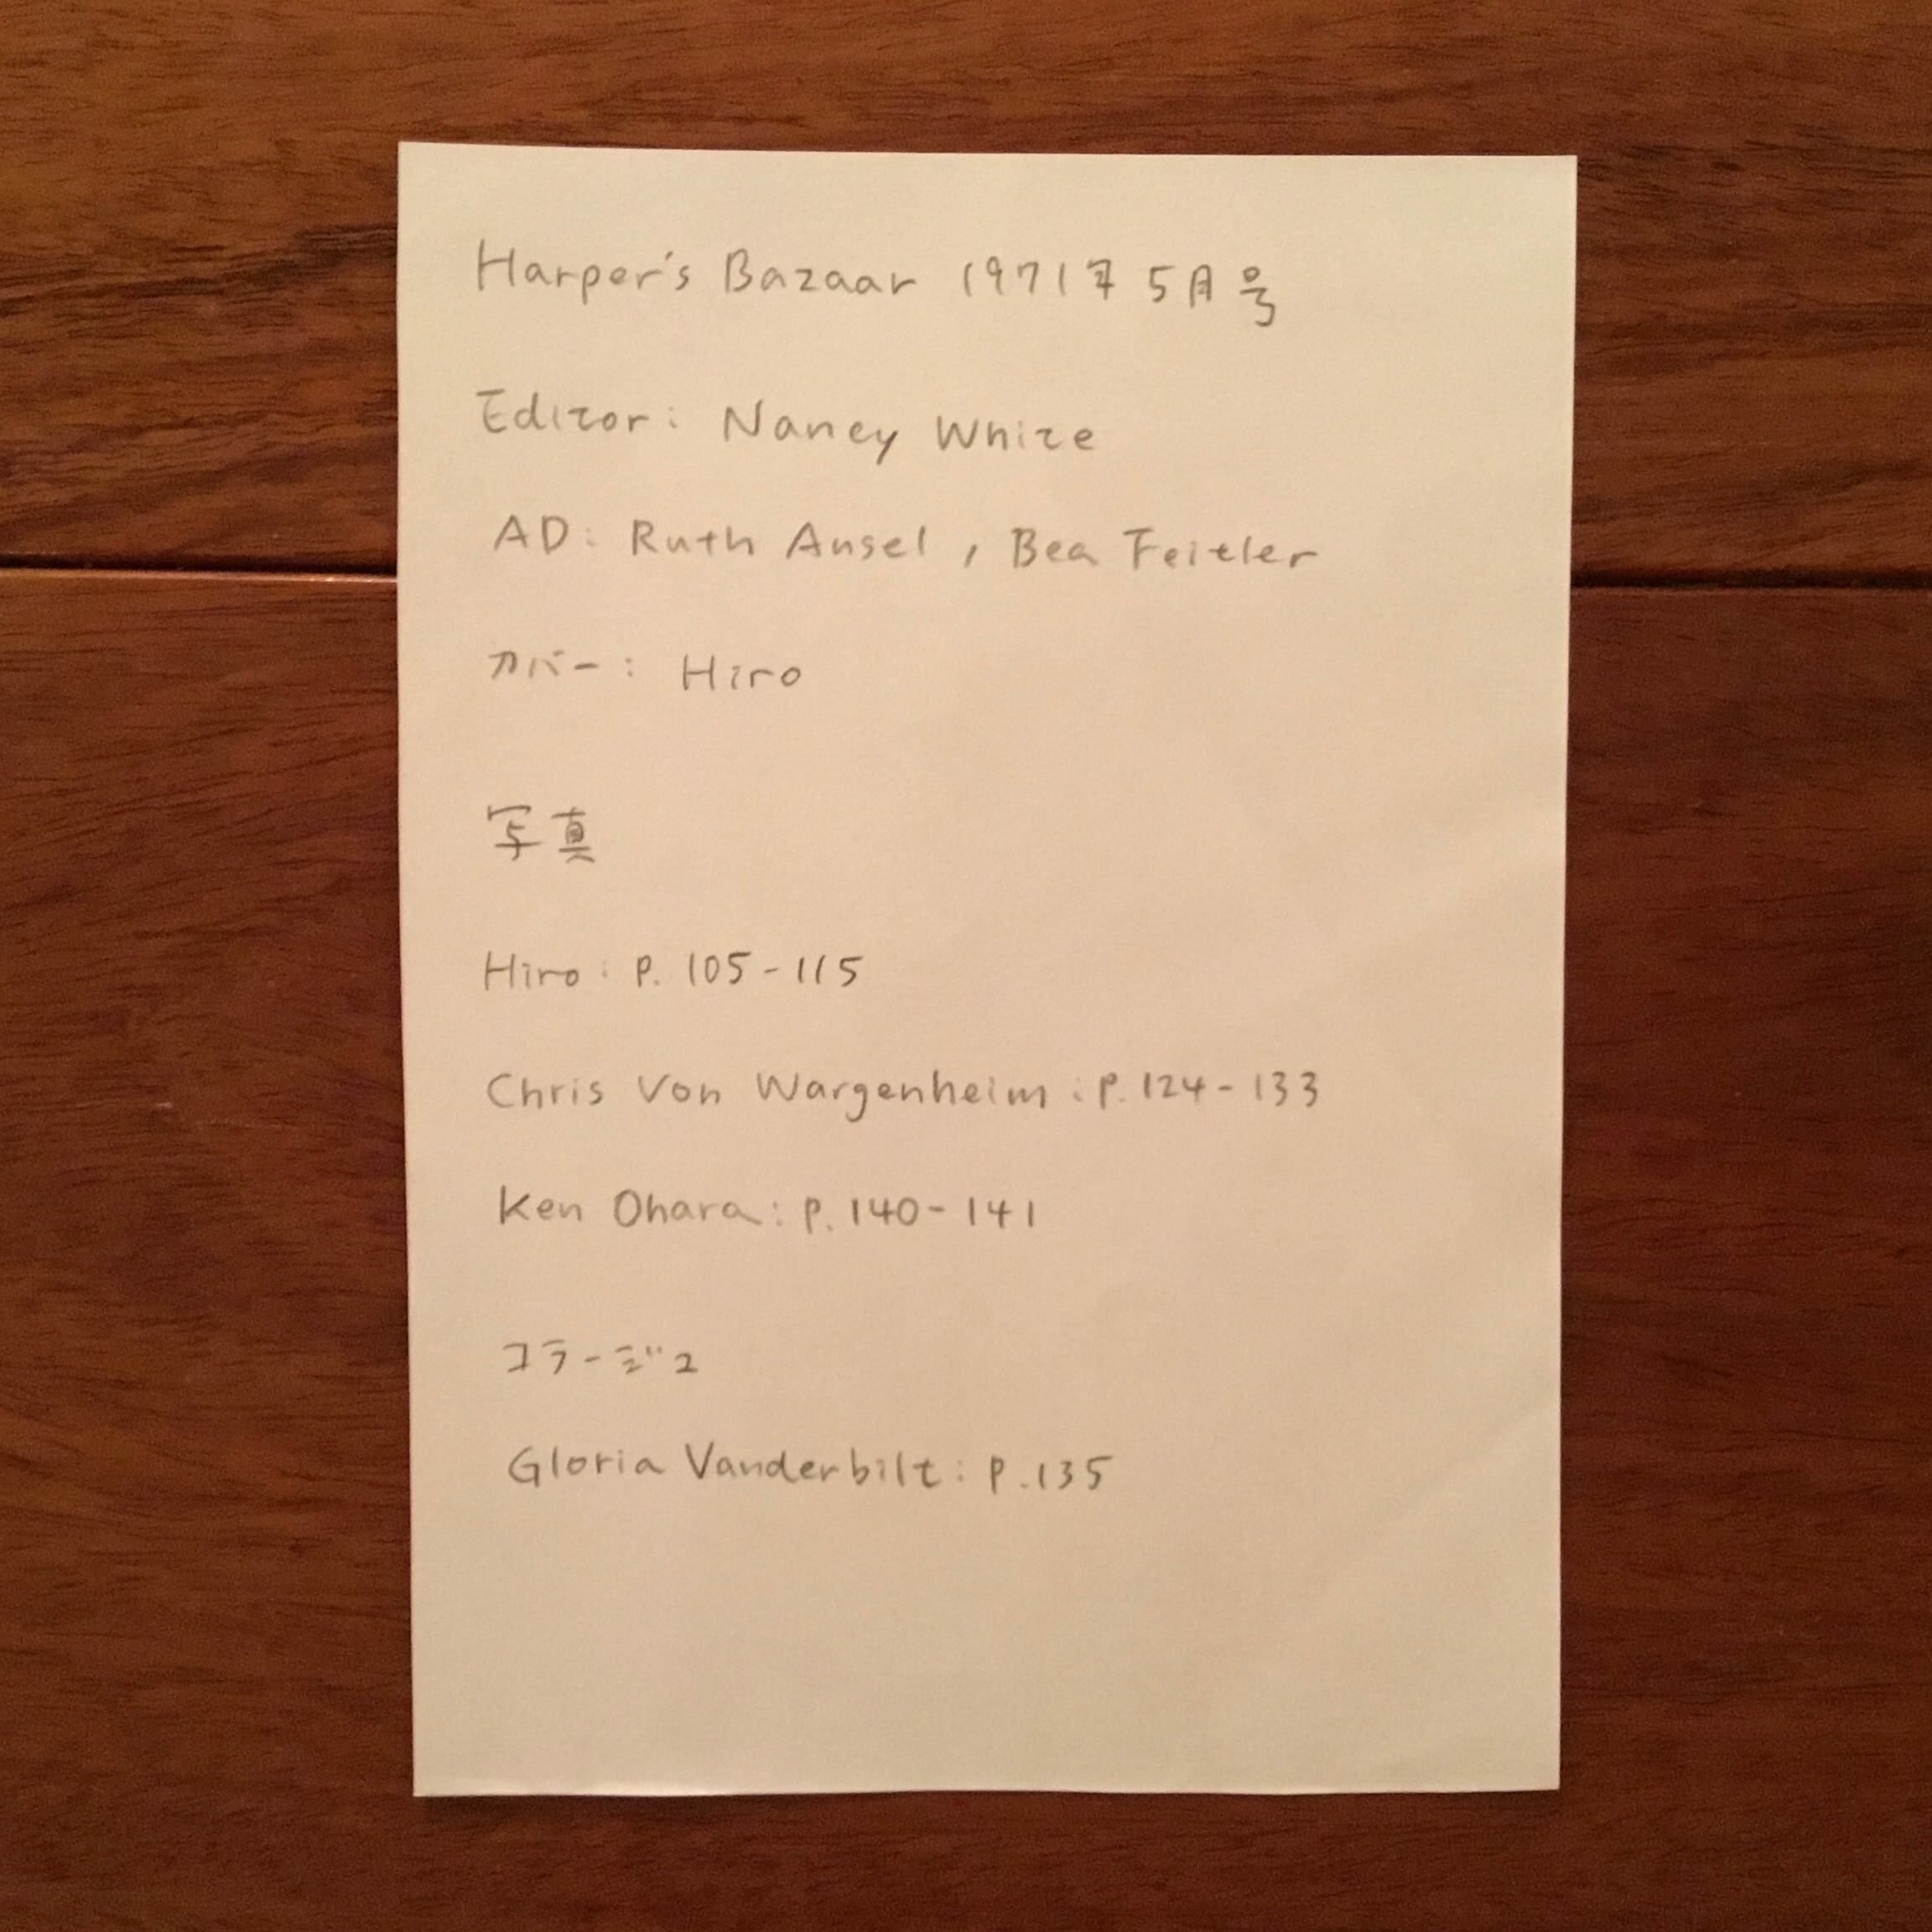 Harper's Bazaar 1971年5月号
Editor: Nancy White
AD: Ruth Ansel, Bea Feitler
カバー: Hiro
写真
Hiro: p. 105-115
Chris Von Wargenheim: p. 124-133
Ken Ohara: p. 140-141
コラージュ
Gloria Vanderbilt: p.135